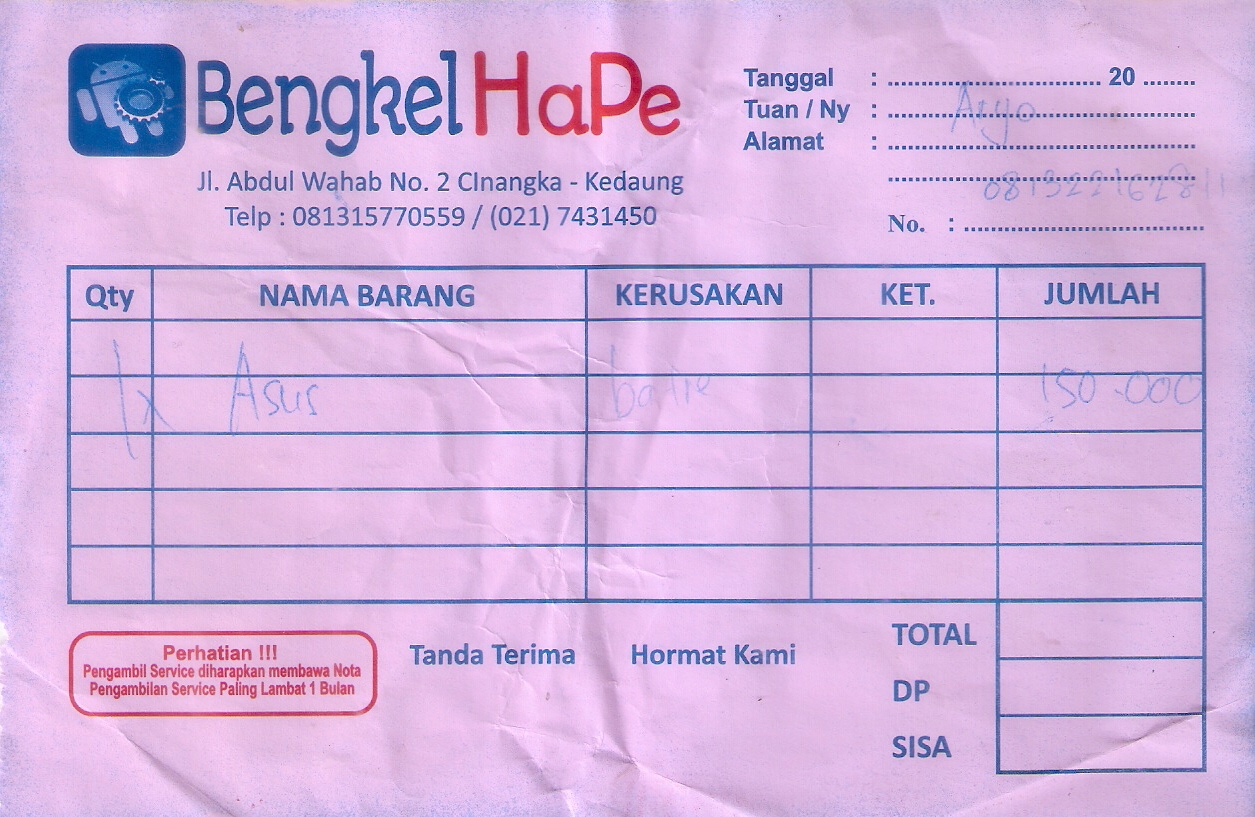 Bengkel HaPe
Jl. Abdul Wahab No. 2 CInangka - Kedaung
Telp : 081315770559 / (021) 7431450
Tanggal : ........................................ 20 .........
Tuan / Ny : Aryo
Alamat :
No. :
Qty NAMA BARANG KERUSAKAN KET. JUMLAH
1x Asus batre 150.000
Perhatian !!!
Pengambil Service diharapkan membawa Nota
Pengambilan Service Paling Lambat 1 Bulan
Tanda Terima Hormat Kami
TOTAL
DP
SISA